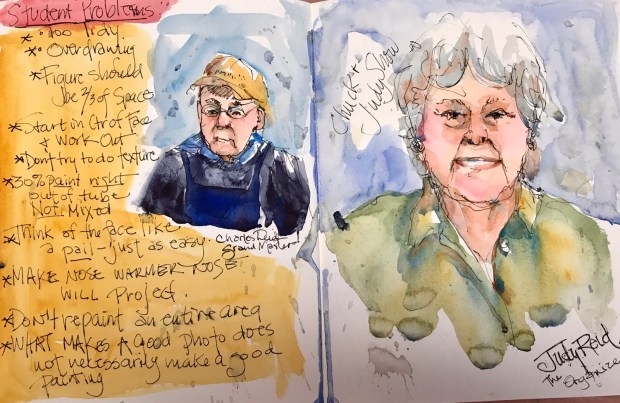 Student Problems:
* Too Tidy
* Overdrawing
* Figure should
be 2/3 of Space
* Start in Ctr of Face
& Work Out
* Don't try to do texture
* 30% paint right
out of tube
Not Mixed
* Think of the face like
a pail - just as easy.
* MAKE NOSE WARMER NOSE
WILL Project.
* DON'T repaint an entire area
* WHAT MAKES A Good photo does
not necessarily make a good
painting
Charles Reid
Grand Master!
Chuck &
Judy Show
Judy Reid
The Organizer